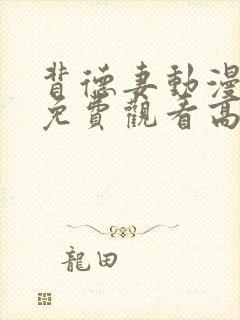 背德妻動漫
免費觀看高
龍田